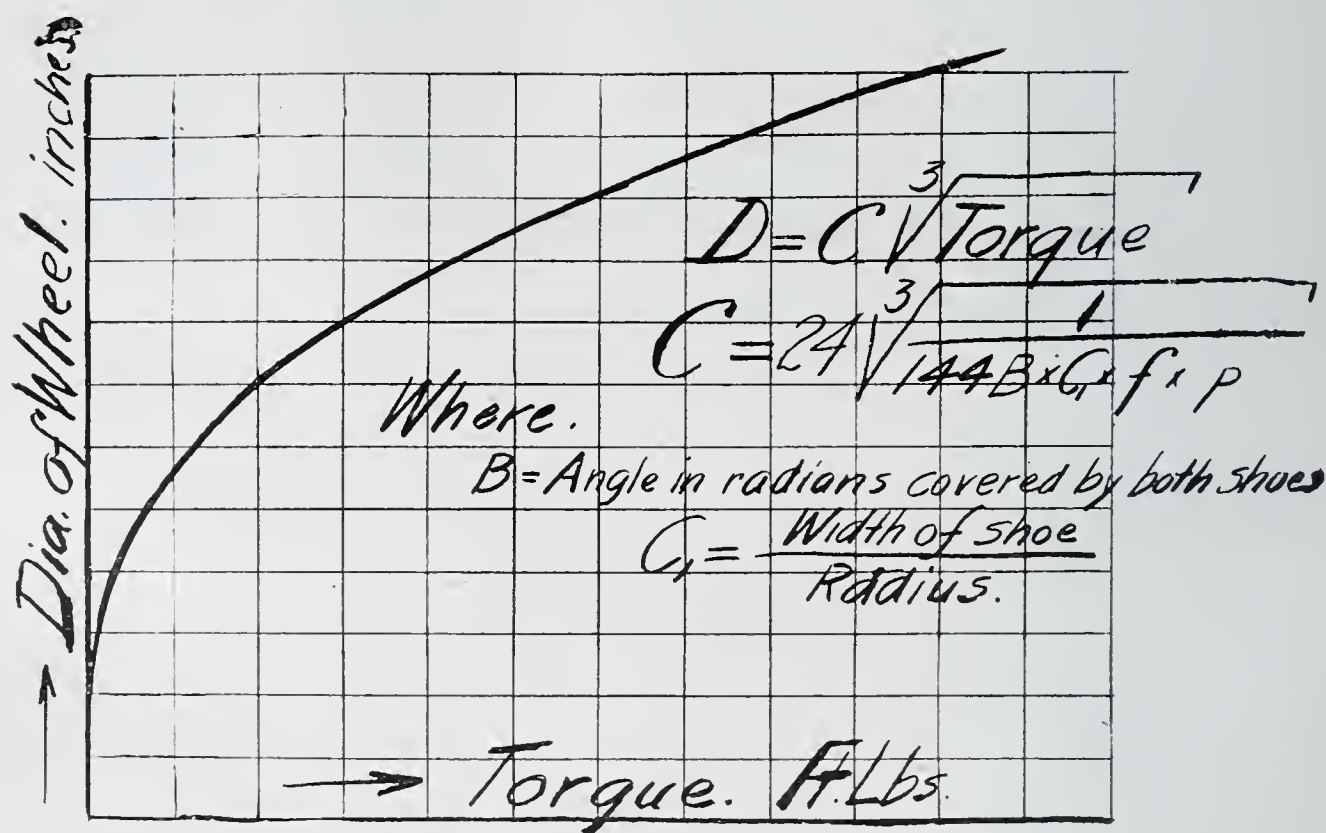 Dia. of Wheel. inches
D = C ∛Torque
C = 24 ∛(1 / 144 B × C₁ × f × p)
Where.
B = Angle in radians covered by both shoes
C₁ = Width of shoe / Radius.
Torque. Ft. Lbs.